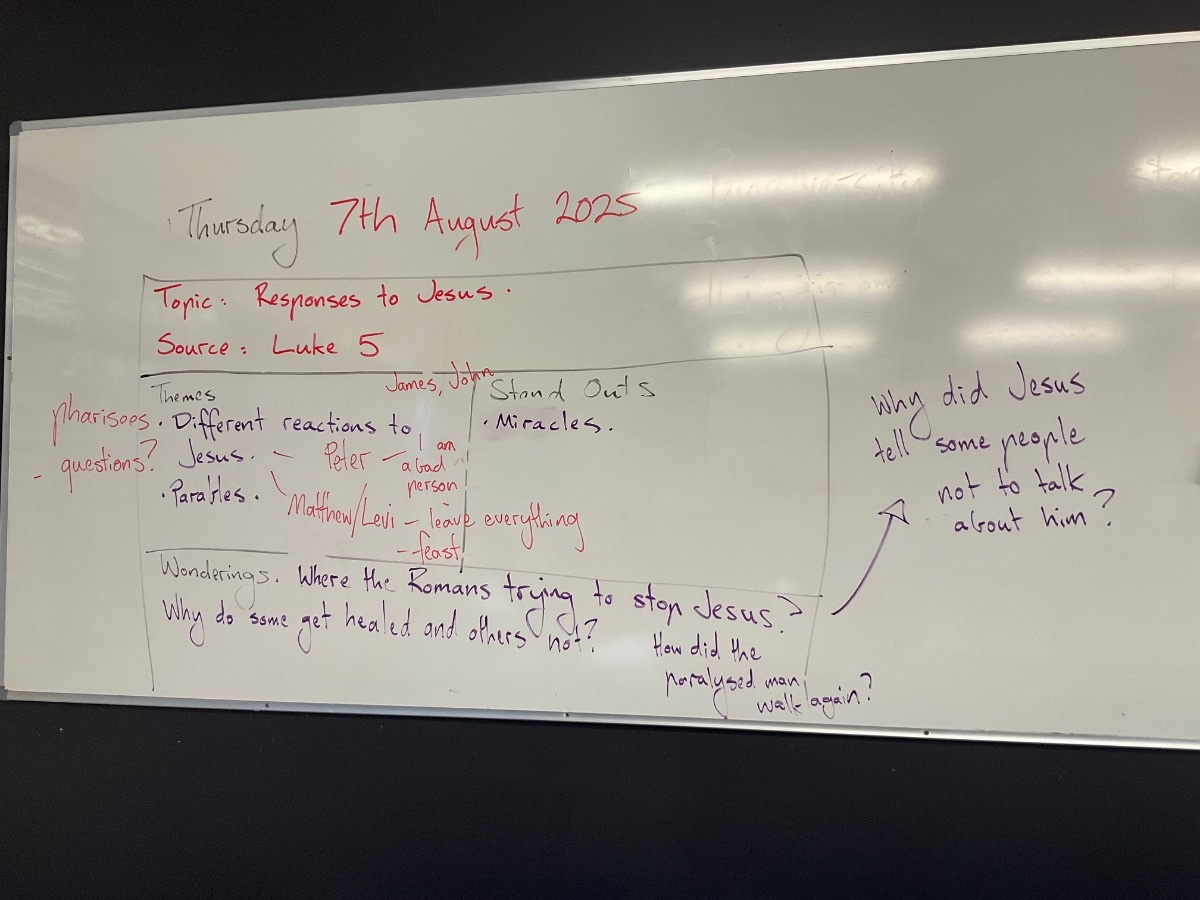 Thursday 7th August 2025
Topic: Responses to Jesus.
Source: Luke 5
Themes
James, John
pharisees
- questions?
· Different reactions to
Jesus.
- Peter - I am
a bad
person
· Parables.
Matthew/Levi - leave everything
- feast
Stand Outs
· Miracles.
Wonderings. Where the Romans trying to stop Jesus?
Why do some get healed and others not?
How did the
paralysed man
walk again?
Why did Jesus
tell some people
not to talk
about him?